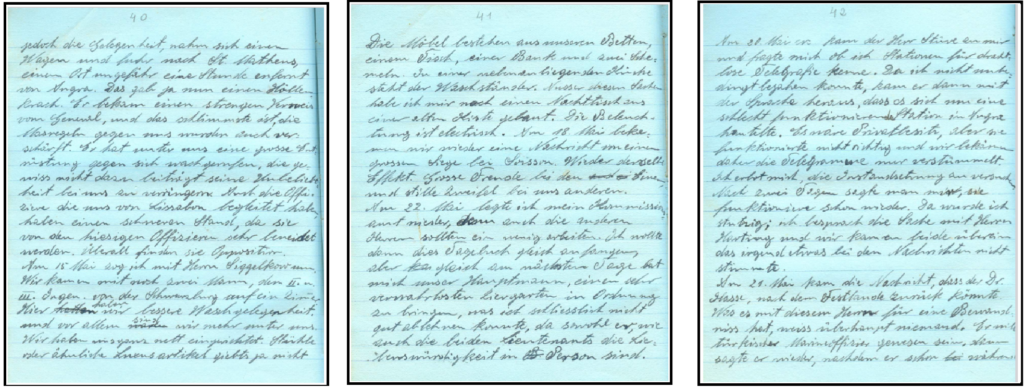 40
jedoch die Gelegenheit, nahm sich einen
Wagen und fuhr nach St. Mathens,
einem Ort ungefähr eine Stunde entfernt
von Angra. Das gab ja nun einen Höllen-
krach. Er bekam einen strengen Verweis
vom General, und das schlimmste ist, die
Massregeln gegen uns wurden auch ver-
schärft. Er hat unter uns eine grosse Ent-
rüstung gegen sich wachgerufen, die ge-
wiss nicht dazu beiträgt seine Unbeliebt-
heit bei uns zu vermindern. Auch die Offi-
ziere die uns von Lissabon begleitet haben
haben einen schweren Stand, da sie
von den hiesigen Offizieren sehr beneidet
werden. Überall finden sie Opposition.
Am 15 Mai zog ich mit Herrn Siggelkow um.
Wir kamen mit noch zwei Mann, den II. u.
III. Ingen. von der Schwarzburg auf ein Zimmer
Hier haben wir bessere Waschgelegenheit,
und vor allem sind wir mehr unter uns.
Wir haben uns ganz nett eingerichtet. Stühle
oder ähnliche Luxusartikel giebts ja nicht
41
Die Möbel bestehen aus unseren Betten,
einem Tisch, einer Bank und zwei Sche-
meln. In einer nebenanliegenden Küche
steht der Waschständer. Ausser diesen Sachen
habe ich mir noch einen Nachttisch aus
einer alten Kiste gebaut. Die Beleuch-
tung ist electrisch. Am 18. Mai beka-
men wir wieder eine Nachricht von einem
grossen Siege bei Soisson. Wieder derselbe
Effekt. Grosse Freude bei den
und stille Zweifel bei uns anderen.
Am 22. Mai legte ich mein Kommissions-
amt nieder, denn auch die anderen
Herren sollten ein wenig arbeiten. Ich wollte
dann dies Tagebuch gleich anfangen,
aber gleich am nächsten Tage bat
mich unser Hauptmann, einen sehr
verwahrlosten Ziergarten in Ordnung
zu bringen, was ich schliesslich nicht
gut ablehnen konnte, da sowohl er, wie
auch die beiden Lieutenants die Lie-
benswürdigkeit in Person sind.
42
Am 20. Mai kam der Herr Stüve zu mir
und fragte mich ob ich Stationen für draht-
lose Telegrafie kenne. Da ich nicht unbe-
dingt bejahen konnte, kam er dann mit
der Sprache heraus, dass es sich um eine
schlecht funktionierende Station in Angra
handelte. Es wäre Privatbesitz, aber sie
funktionierte nicht richtig und wir bekämen
daher die Telegramme nur verstümmelt.
Ich erbot mich, die Instandsetzung zu versuchen
Nach zwei Tagen sagte man mir, sie
funktioniere schon wieder. Da wurde ich
stutzig; ich besprach die Sache mit Herrn
Hartung und wir kamen beide überein
das irgend etwas bei den Nachrichten nicht
stimmte.
Am 21. Mai kam die Nachricht, dass der Dr.
Hasse, nach dem Festlande zurück könnte
Was es mit diesem Herrn für eine Bewand-
niss hat, weiss überhaupt niemand. Er will
türkischer Marineoffizier gewesen sein, dann
sagte er wieder, nachdem er schon bei